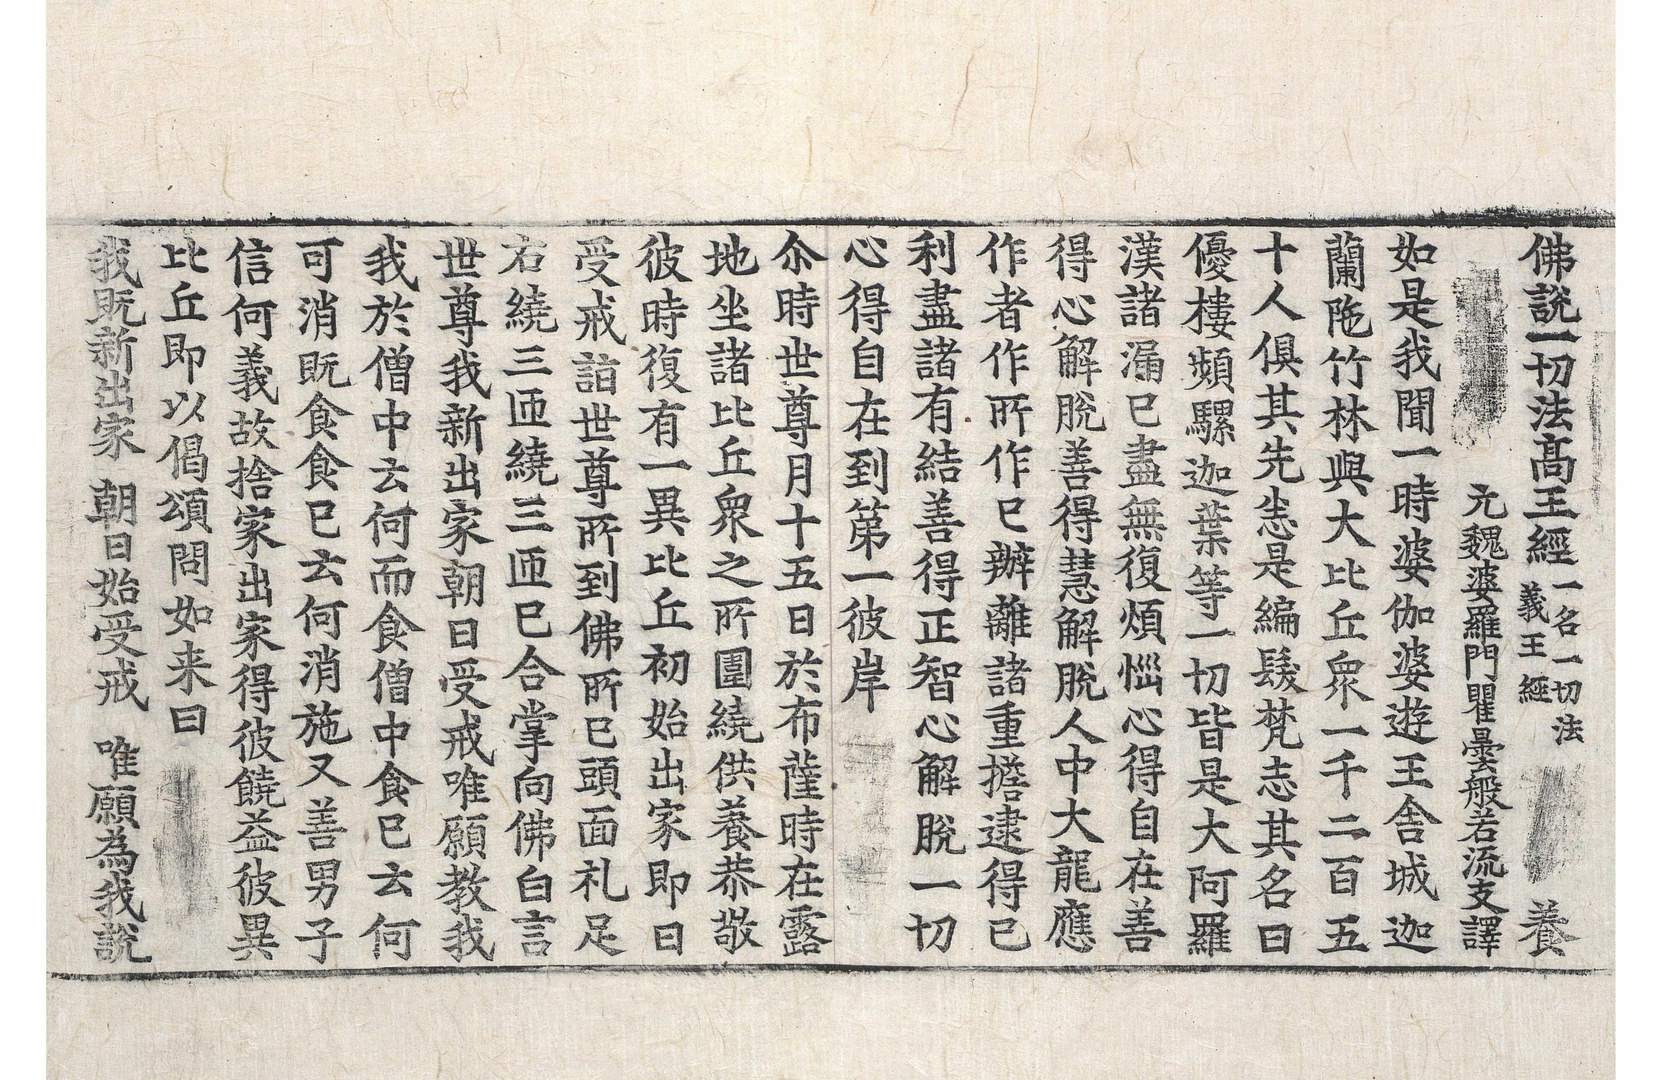 佛說一切法高王經一名一切法義王經 養
元魏婆羅門瞿曇般若流支譯
如是我聞一時婆伽婆遊王舍城迦
蘭陁竹林與大比丘衆一千二百五
十人俱其先悉是編髮梵志其名曰
優樓頻騾迦葉等一切皆是大阿羅
漢諸漏已盡無復煩惱心得自在善
得心解脫善得慧解脫人中大龍應
作者作所作已辦離諸重擔逮得已
利盡諸有結善得正智心解脫一切
心得自在到第一彼岸
尒時世尊月十五日於布薩時在露
地坐諸比丘衆之所圍繞供養恭敬
彼時復有一異比丘初始出家即日
受戒詣世尊所到佛所已頭面礼足
右繞三匝繞三匝已合掌向佛白言
世尊我新出家朝日受戒唯願教我
我於僧中云何而食僧中食已云何
可消既食食已云何消施又善男子
信何義故捨家出家得彼饒益彼異
比丘即以偈頌問如来曰
我既新出家 朝日始受戒 唯願為我說